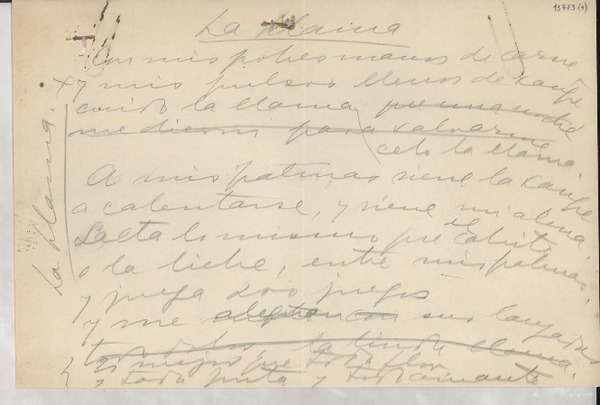 15773(9)
La llama
Con mis pobres manos de carne
y mis pulsos llenos de sangre
cuido la llama que una noche
me dieron para salvarme
celo la llama
La llama.
A mis palmas viene la sangre
a calentarse, y viene mi alma.
Salta lo mismo que el cabrito
o la liebre, entre mis palmas,
y juega sus juegos
y me sus
la linda llama,
que toda flor
y toda fruta y todo amante